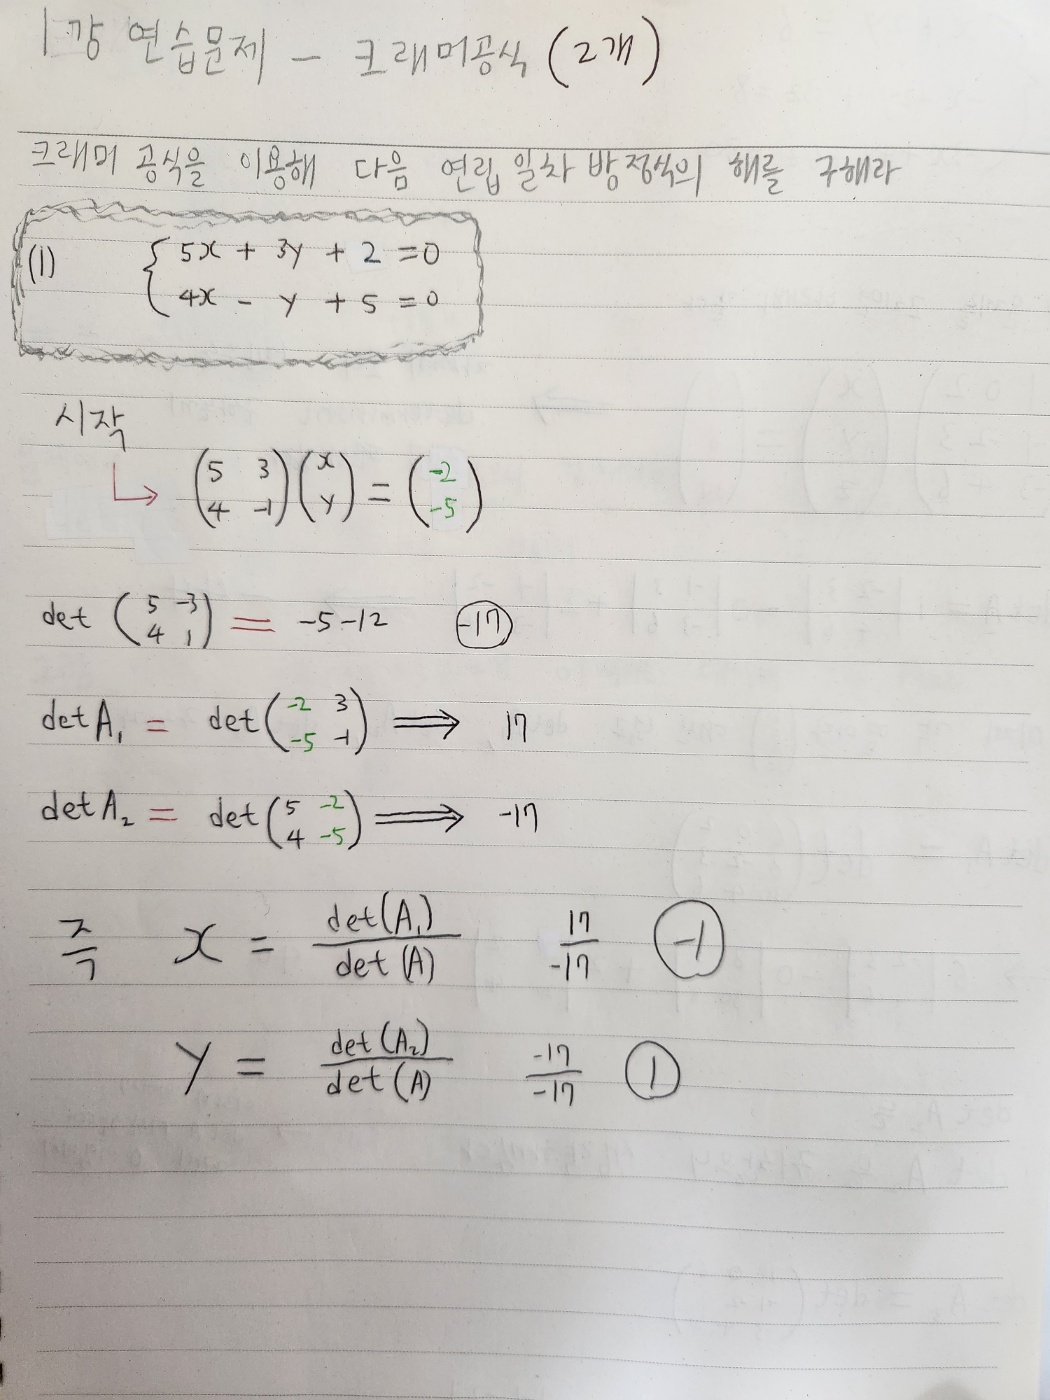 1강 연습문제 - 크래머공식 (2개)
크래머 공식을 이용해 다음 연립 일차 방정식의 해를 구해라
(1) { 5x + 3y + 2 = 0
4x - y + 5 = 0
시작
↳ (5 3 / 4 -1)(x / y) = (-2 / -5)
det (5 -3 / 4 1) = -5-12 (-17)
det A₁ = det(-2 3 / -5 -1) ⟹ 17
det A₂ = det(5 -2 / 4 -5) ⟹ -17
x = det(A₁) / det(A) 17 / -17 (-1)
y = det(A₂) / det(A) -17 / -17 (1)